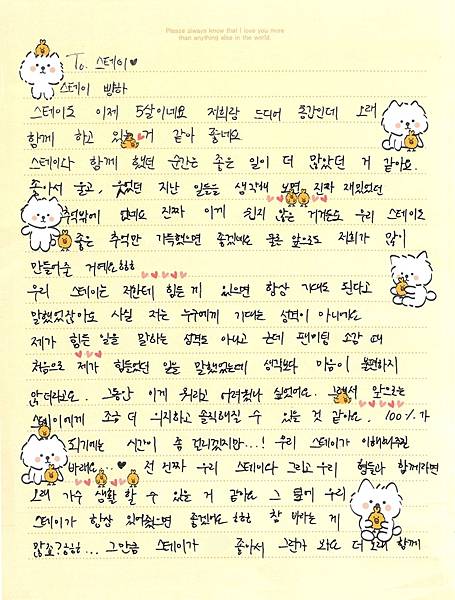 Please always know that I love you more
than anything else in the world.
To. 스테이♥
스테이 빵하
스테이도 이제 5살이네요 저희랑 드디어 동갑인데 오래
함께 하고 있는 거 같아 좋네요
스테이와 함께 했던 순간은 좋은 일이 더 많았던 거 같아요.
좋아서 울고, 웃었던 지난 일들을 생각해 보면 진짜 재밌었던
추억밖에 없네요 진짜 이게 쉽지 않은 거거든요 우리 스테이도
좋은 추억만 가득했으면 좋겠네요 물론 앞으로도 저희가 많이
만들어줄 거예요ㅎㅎㅎ
우리 스테이는 저한테 힘든 게 있으면 항상 기대도 된다고
말했었잖아요 사실 저는 누구에게 기대는 성격이 아니에요
제가 힘든 일을 말하는 성격도 아니고 근데 팬미팅 소감 때
처음으로 제가 힘들었던 일을 말했었는데 생각보다 마음이 불편하지
않더라고요. 그동안 이게 뭐라고 어려웠나 싶었어요. 그래서 앞으로는
스테이에게 조금 더 의지하고 솔직해질 수 있을 것 같아요. 100%가
되기에는 시간이 좀 걸리겠지만...! 우리 스테이가 이해해주길
바래요..♥ 전 진짜 우리 스테이와 그리고 우리 형들과 함께라면
오래 가수 생활 할 수 있는 거 같아요 그 옆에 우리
스테이가 항상 있어줬으면 좋겠어요 ㅎㅎㅎ 참 바라는 게
많죠?ㅎㅎㅎ... 그만큼 스테이가 좋아서 그런가 봐요 더 오래 함께